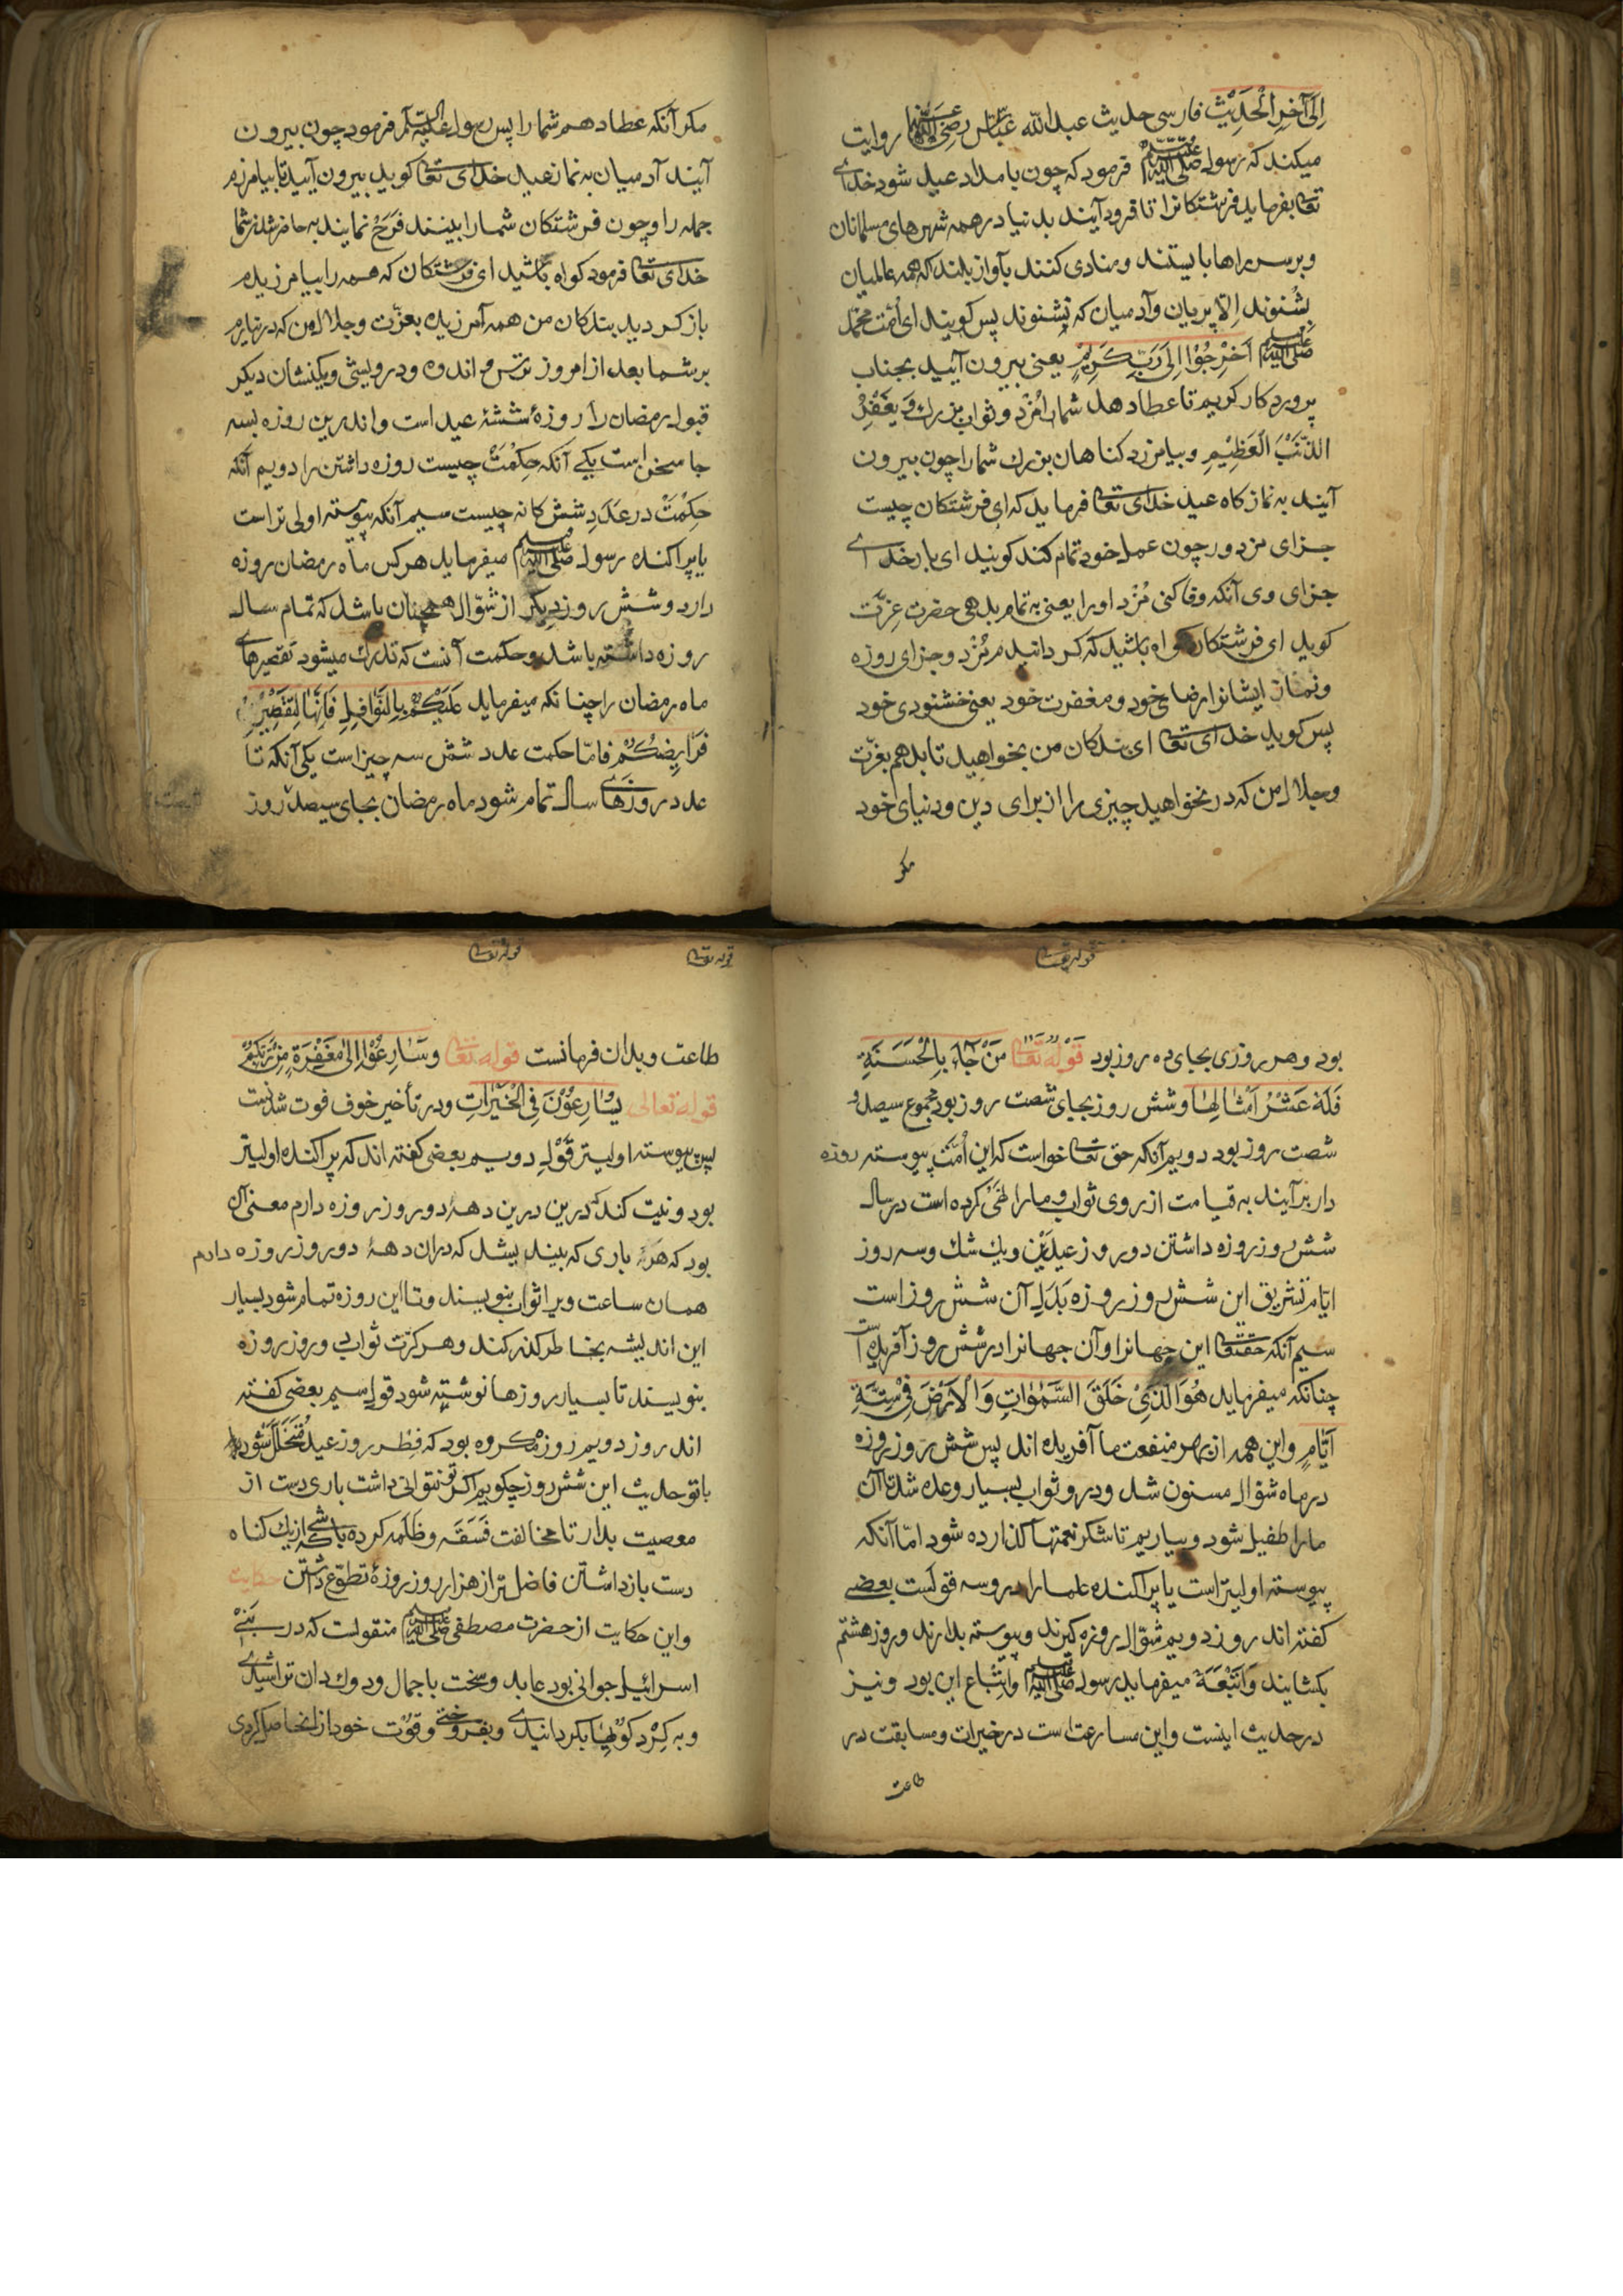 اِلَی آخِرِ الْحَدِیْثِ فارسی حدیث عبد الله عباس رضی الله عنهما روایت
میکند که رسول صلی الله علیه وسلم فرمود که چون بامداد عید شود خدای
تعا بفرماید فرشتکانرا تا فرود آیند بدنیا در همه شهرهای مسلمانان
و برسر راها بایستند و منادی کنند بآواز بلند که همه عالمیان
بشنوند اِلّا پریان و آدمیان که نشنوند پس کویند ای اُمّت محمّد
صلی الله علیه وسلم اُخْرُجُوْا اِلیَ رَبٍّ کَرِیْمٍ یعنی بیرون آئید بجناب
پروردکار کریم تا عطا دهد شمارا مُزد و ثواب بزرك وَ یَغْفِرُ
الذَّنْبَ الْعَظِیْمِ و بیامرزد کناهان بزرك شمارا چون بیرون
آیند به نمازکاه عید خدای تعا فرماید که ای فرشتکان چیست
جزای مزدور چون عمل خود تمام کند کویند ای بار خدای
جزای وی آنکه وفا کنی مُزْد اورا یعنی به تمام بدهی حضرت عِزّت
کوید ای فرشتکان کواه باشید که کردانیدم مُزد و جزای روزه
و نماز ایشانرا رضای خود و مغفرت خود یعنی خشنودی خود
پس کوید خدای تعا ای بندکان من بخواهید تا بدهم بعزّت
و جلال من که در نخواهید چیزی را از برای دین و دنیای خود
مکر
مکر آنکه عطا دهم شمارا پس رسول علیه السلم فرمود چون بیرون
آیند آدمیان به نماز عید خدای تعا کوید بیرون آیید تا بیامرزم
جمله را و چون فرشتکان شمارا بینند فَرَحْ نمایند به حاضر شدن شما
خدای تعا فرمود کواه باشید ای فرشتکان که همه را بیامرزیدم
باز کردید بندکان من همه آمرزیده بعزّت و جلال من که در نیارم
بر شما بعد از امروز ترس و اندوه و درویشی ویکنشان دیکر
قبول رمضان را روزۀ ششۀ عید است و اندرین روزه بسه
جا سخن است یکی آنکه حِکْمَتْ چیست روزه داشتن را دویم آنکه
حِکْمَتْ در عَدَدِ شش کانه چیست سیم آنکه پیوسته اولی تر است
یا پراکنده رسول صلی الله علیه وسلم میفرماید هر کس ماه رمضان روزه
دارد و شش روز دیکر از شوّال همچنان باشد که تمام سال
روزه داشته باشد و حکمت آنست که تدارك میشود تقصیرهای
ماه رمضان را چنانکه میفرماید عَلَیْکُمْ بِالنَّوَافِلِ فَاِنَّهَا لِتَقْصِیْرِ
فَرَایِضِکُمْ فامّا حکمت عدد شش سه چیز است یکی آنکه تا
عدد روزهای سال تمام شود ماه رمضان بجای سیصد روز
قوله تعا
بود و هر روزی بجای ده روز بود قَوْلُهُ تَعَا مَنْ جَاءَ بِالْحَسَنَةِ
فَلَهُ عَشْرُ اَمْثَالِهَا و شش روز بجای شصت روز بود مجموع سیصد و
شصت روز بود دویم آنکه حق تعا خواست که این اُمَّتْ پیوسته روزه
دار برآیند به قیامت از روی ثواب و مارا نَهْیْ کرده است در سال
شش روز روزه داشتن دو روز عیدَیْن ویك شك و سه روز
ایّام تشریق این شش روز روزه بَدَلِ آن شش روز است
سیم آنکه حقتعا این جهانرا و آن جهانرا در شش روز آفریده است
چنانکه میفرماید هُوَ الَّذِیْ خَلَقَ السَّمٰوَاتِ وَ الْاَرْضَ فِیْ سِتَّةِ
اَیَّامٍ و این همه از بهر منفعت ما آفریده اند پس شش روز روزه
در ماه شوّال مسنون شد و درو ثواب بسیار وعده شد تا آن
مارا طفیل شود و بیاریم تا شکر نعمتها کذارده شود امّا آنکه
پیوسته اولیتر است یا پراکنده علمارا درو سه قولست بعضی
کفته اند روز دویم شوّال روزه کیرند و پیوسته بدارند و روز هشتم
بکشایند وَاَتْبَعَهُ میفرماید رسول صلی الله علیه وسلم و اِتّباع این بود و نیز
در حدیث اینست و این مسارعت است در خیرات و مسابقت در
طاعت
قوله تعا
قوله تعا
طاعت و بدان فرمانست قوله تعا وَسَارِعُوْا اِلیٰ مَغْفِرَةٍ مِنْ رَبِّکُمْ
قوله تعالی یُسَارِعُوْنَ فِی الْخَیْرَاتِ و در تأخیر خوف فوت شدنست
پس پیوسته اولیتر قَوْلِ دویم بعضی کفته اند که پراکنده اولیتر
بود و نیت کند که درین درین دهۀ دو روز روزه دارم معنی آن
بود که هر باری که بیندیشد که دران دهۀ دو روز روزه دارم
همان ساعت ویرا ثواب بنویسند و تا این روزه تمام شود بسیار
این اندیشه بخاطر کذر کند و هر کرّت ثوابی و روز روزه
بنویسند تا بسیار روزها نوشته شود قول سیم بعضی کفته
اند روز دویم روزه مکروه بود که فِطْر روز عید مُتَخَلِّل شود
با تو حدیث این شش روز چکویم اکر تو نتوانی داشت باری دست از
معصیت بدار تا مخالفت فَسَقَه و ظَلَمَه کرده باشی که از یك کناه
دست بازداشتن فاضل تر از هزار روز روزۀ تطوّع داشتن حکایت
و این حکایت از حضرت مصطفی صلی الله علیه وسلم منقولست که در بَنِیْ
اسرائیل جوانی بود عابد و سخت باجمال و دوك دان تراشیدی
و به کِرْد کویها بکردانیدی و بفروختی و قوت خود از انجا حاصل کردی